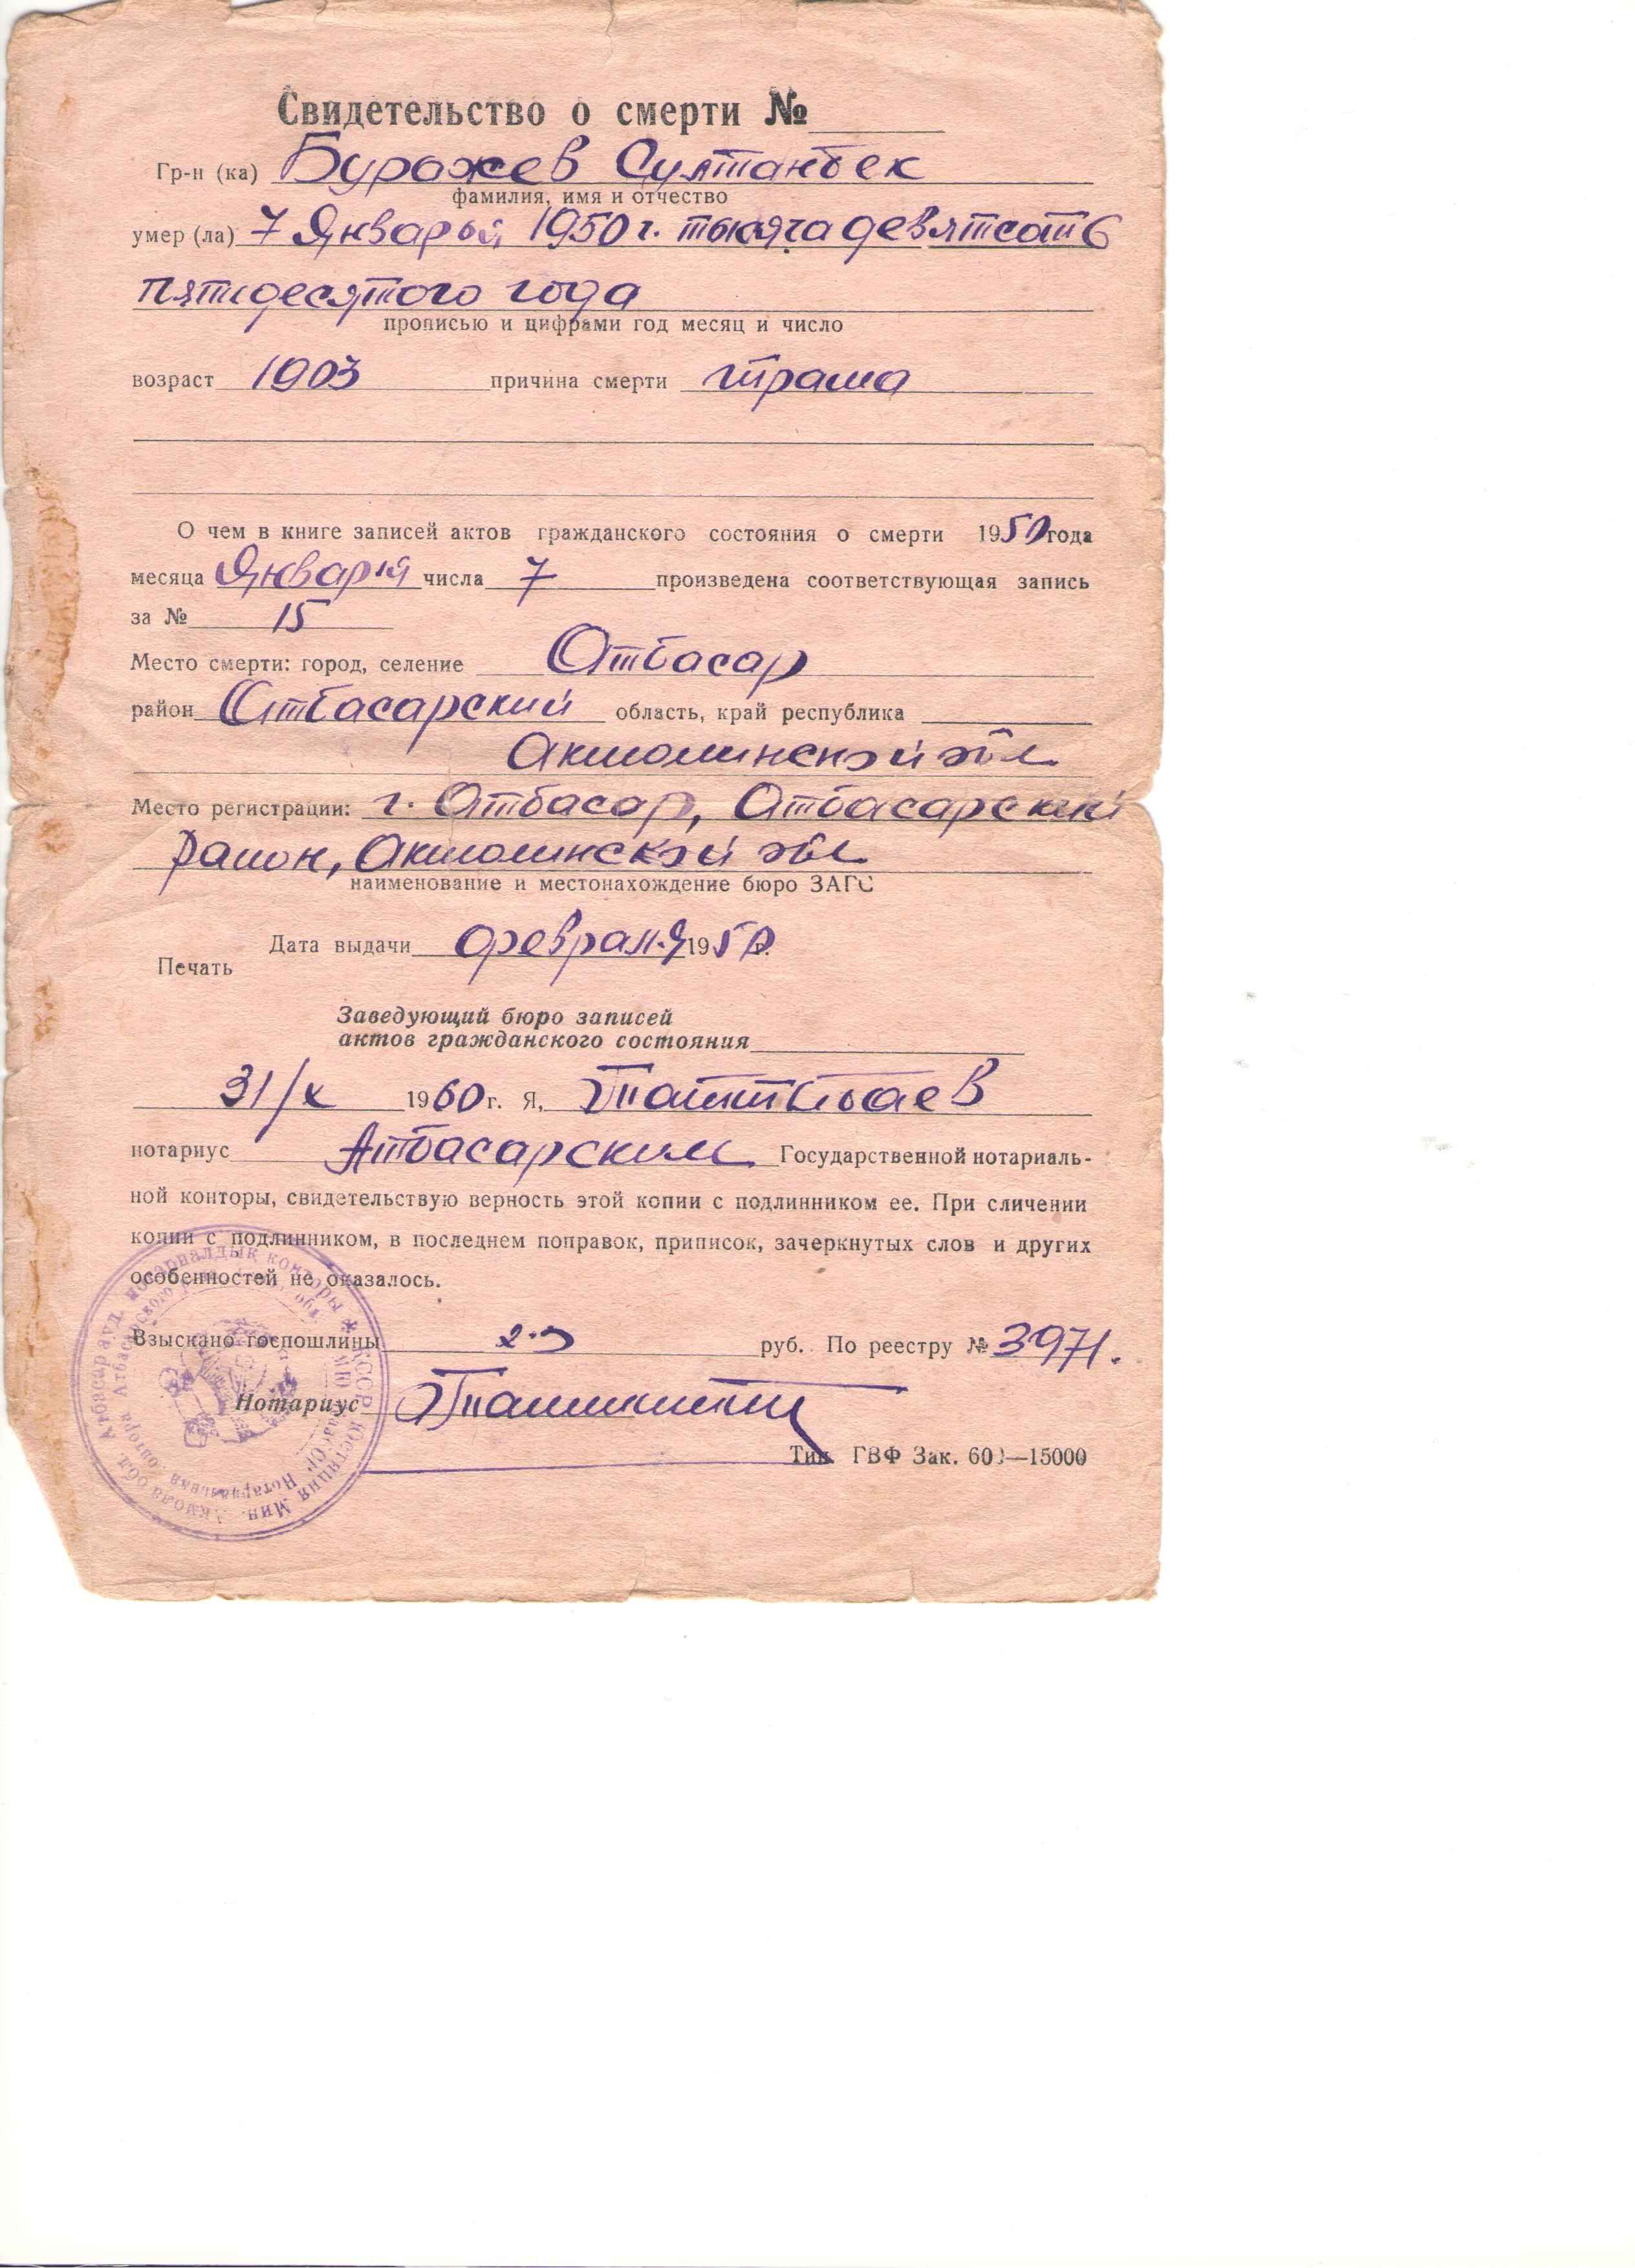 Свидетельство о смерти №
Гр-н (ка) Буражев Султанбек
фамилия, имя и отчество
умер (ла) 7 Января 1950 г. тысяча девятсать
пятидесятого года
прописью и цифрами год месяц и число
возраст 1903 причина смерти
О чем в книге записей актов гражданского состояния о смерти 1950 года
месяца Января числа 7 произведена соответствующая запись
за № 15
Место смерти: город, селение Атбасар
район Атбасарский область, край республика
Акмолинской обл
Место регистрации: г. Атбасар, Атбасарский
район, Акмолинской обл
наименование и местонахождение бюро ЗАГС
Дата выдачи февраля 1950.
Печать
Заведующий бюро записей
актов гражданского состояния
31/X 1960 г. Я,
нотариус Атбасарским Государственной нотариаль-
ной конторы, свидетельствую верность этой копии с подлинником ее. При сличении
копии с подлинником, в последнем поправок, приписок, зачеркнутых слов и других
особенностей не оказалось.
Взыскано госпошлины руб. По реестру № 3971.
Нотариус
Тип ГВФ Зак. 600—15000